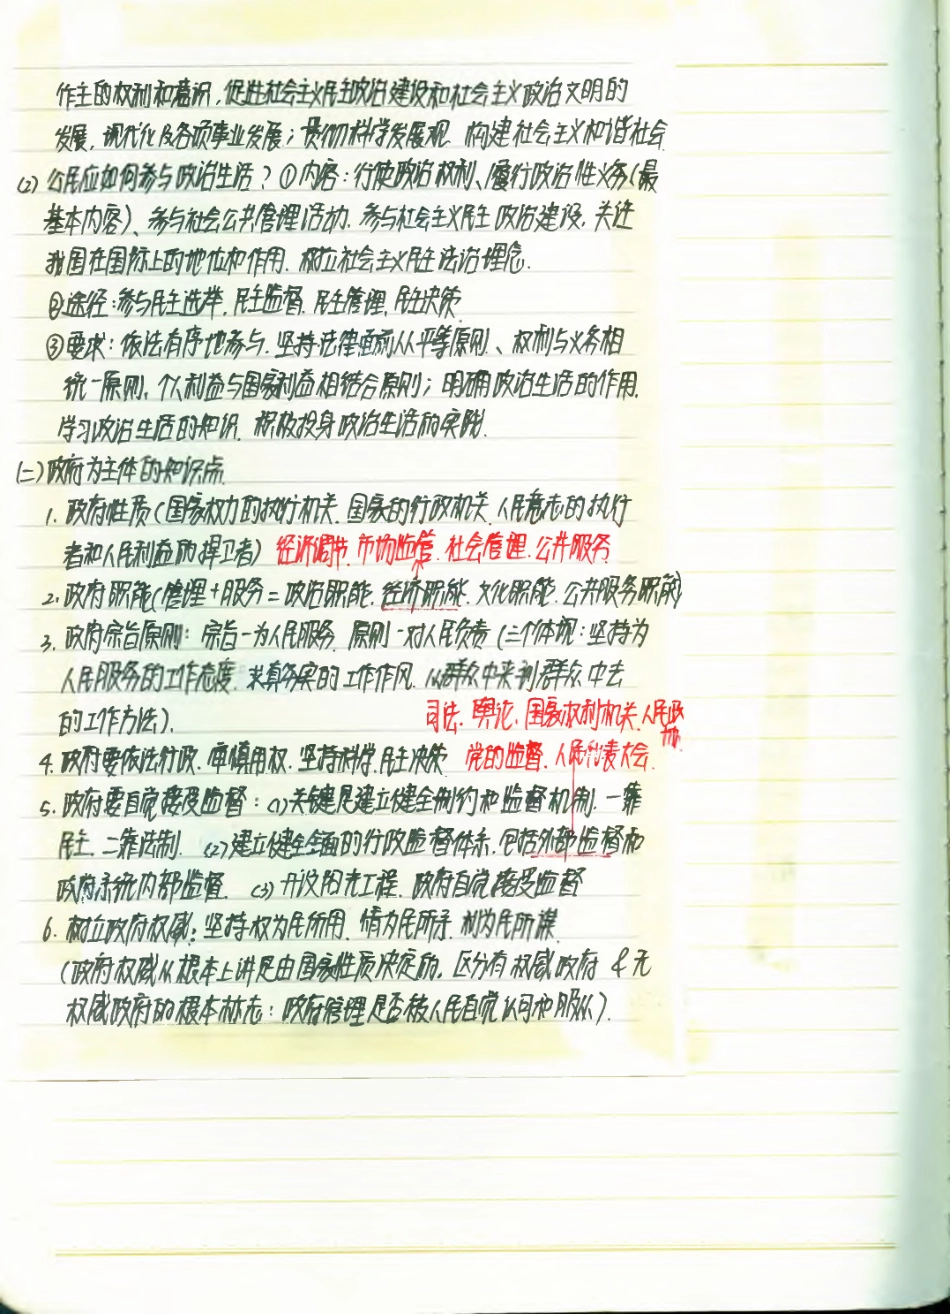 作主的权利和意识,促进社会主义民主政治建设和社会主义政治文明的
发展,现代化及各项事业发展;贯彻科学发展观、构建社会主义和谐社会
(2) 公民应如何参与政治生活?①内容:行使政治权利、履行政治性义务(最
基本内容)、参与社会公共管理活动、参与社会主义民主政治建设、关注
我国在国际上的地位和作用、树立社会主义民主法治理念.
②途径:参与民主选举、民主监督、民主管理、民主决策
③要求:依法有序地参与、坚持法律面前人人平等原则、权利与义务相
统一原则、个人利益与国家利益相结合原则;明确政治生活的作用、
学习政治生活的知识、积极投身政治生活的实践.
(二)政府为主体的知识点
1. 政府性质(国家权力的执行机关、国家的行政机关、人民意志的执行
者和人民利益的捍卫者) 经济调节、市场监管、社会管理、公共服务
2. 政府职能(管理+服务=政治职能、经济职能、文化职能、公共服务职能)
3. 政府宗旨原则:宗旨-为人民服务、原则-对人民负责(三个体现:坚持为
人民服务的工作态度、求真务实的工作作风、从群众中来到群众中去
的工作方法). 司法、舆论、国家权利机关、人民政协
4. 政府要依法行政、审慎用权、坚持科学、民主决策 党的监督、人民代表大会
5. 政府要自觉接受监督:(1)关键是建立健全制约和监督机制、一靠
民主、二靠法制. (2)建立健全全面的行政监督体系,包括外部监督和
政府系统内部监督. (3) 开设阳光工程、政府自觉接受监督
6. 树立政府权威:坚持权为民所用、情为民所系、利为民所谋
(政府权威从根本上讲是由国家性质决定的、区分有权威政府 & 无
权威政府的根本标志:政府管理是否被人民自觉认可和服从).